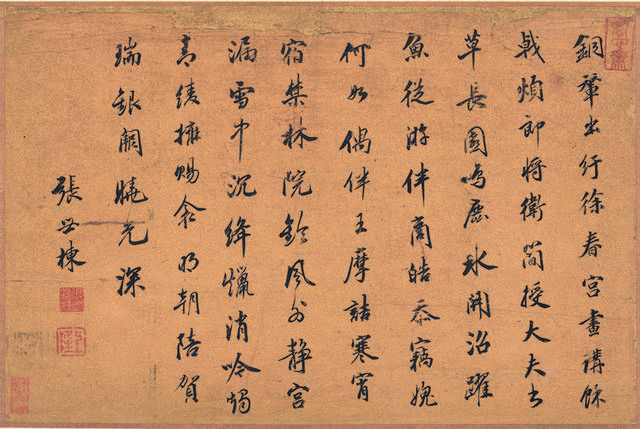 銅輦出行徐春宮晝講餘
戟煩郎將衛簡授大夫書
草長園鳴鹿氷開沼躍
魚從游伴商皓忝竊媿
何如偶伴王摩詰寒宵
宿禁林院鈴風外靜宮
漏雪中沉絳蠟消吟燭
青綾擁賜衾明朝陪賀
瑞銀闕曉光深
張世棟